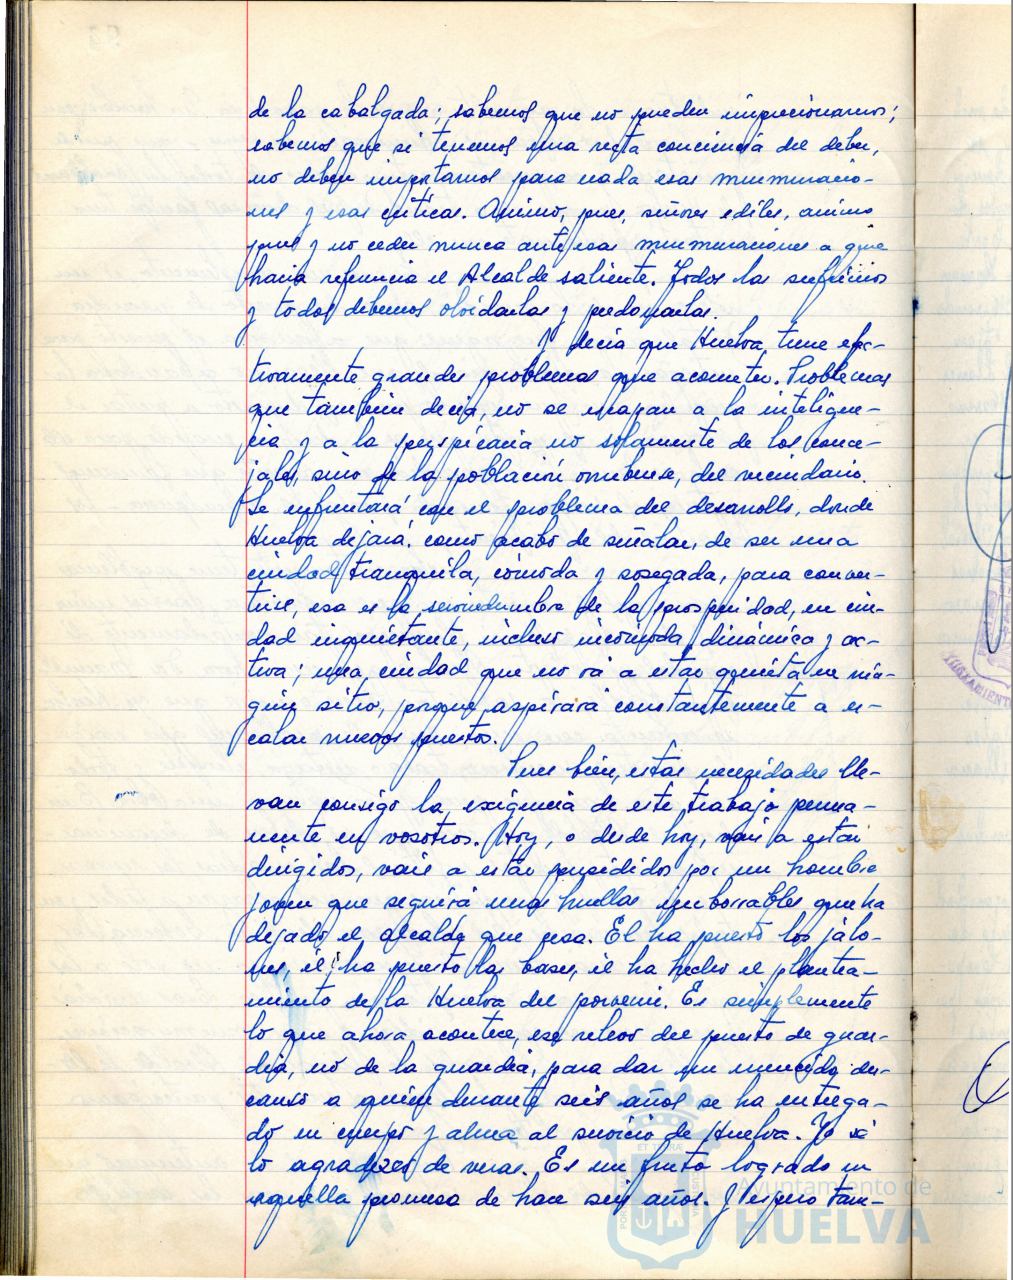 de la cabalgada; sabemos que no pueden impresionarnos;
sabemos que si tenemos una recta conciencia del deber,
no deben importarnos para nada esas murmuracio-
nes y esas críticas. Animo, pues, señores ediles, animo
pues y no ceder nunca ante esas murmuraciones a que
hacia referencia el Alcalde saliente. Todos las sufrimos
y todos debemos olvidarlas y perdonarlas.
Y decia que Huelva tiene efec-
tivamente grandes problemas que acometer. Problemas
que también decia, no se escapan a la inteligen-
cia y a la perspicacia no solamente de los conce-
jales, sino de la población onubense, del vecindario.
Se enfrentará con el problema del desarrollo, donde
Huelva dejará, como acabo de señalar, de ser una
ciudad tranquila, cómoda y sosegada, para conver-
tirse, esa es la servidumbre de la prosperidad, en ciu-
dad inquietante, incluso incómoda, dinámica y ac-
tiva; una ciudad que no va a estar quieta en nin-
gún sitio, porque aspirará constantemente a es-
calar nuevos puestos.
Pues bien, estas necesidades lle-
van consigo la exigencia de este trabajo perma-
nente en vosotros. Hoy, o desde hoy, vais a estar
dirigidos, vais a estar presididos por un hombre
joven que seguirá unas huellas imborrables que ha
dejado el alcalde que cesa. El ha puesto los jalo-
nes, él ha puesto las bases, él ha hecho el plantea-
miento de la Huelva del porvenir. Es simplemente
lo que ahora acontece, ese relevo del puesto de guar-
dia, no de la guardia, para dar un merecido des-
canso a quien durante seis años se ha entrega-
do en cuerpo y alma al servicio de Huelva. Yo sé
lo agradezco de veras. Es un fruto logrado en
aquella promesa de hace seis años. Y espero tam-
Ayuntamiento de
HUELVA